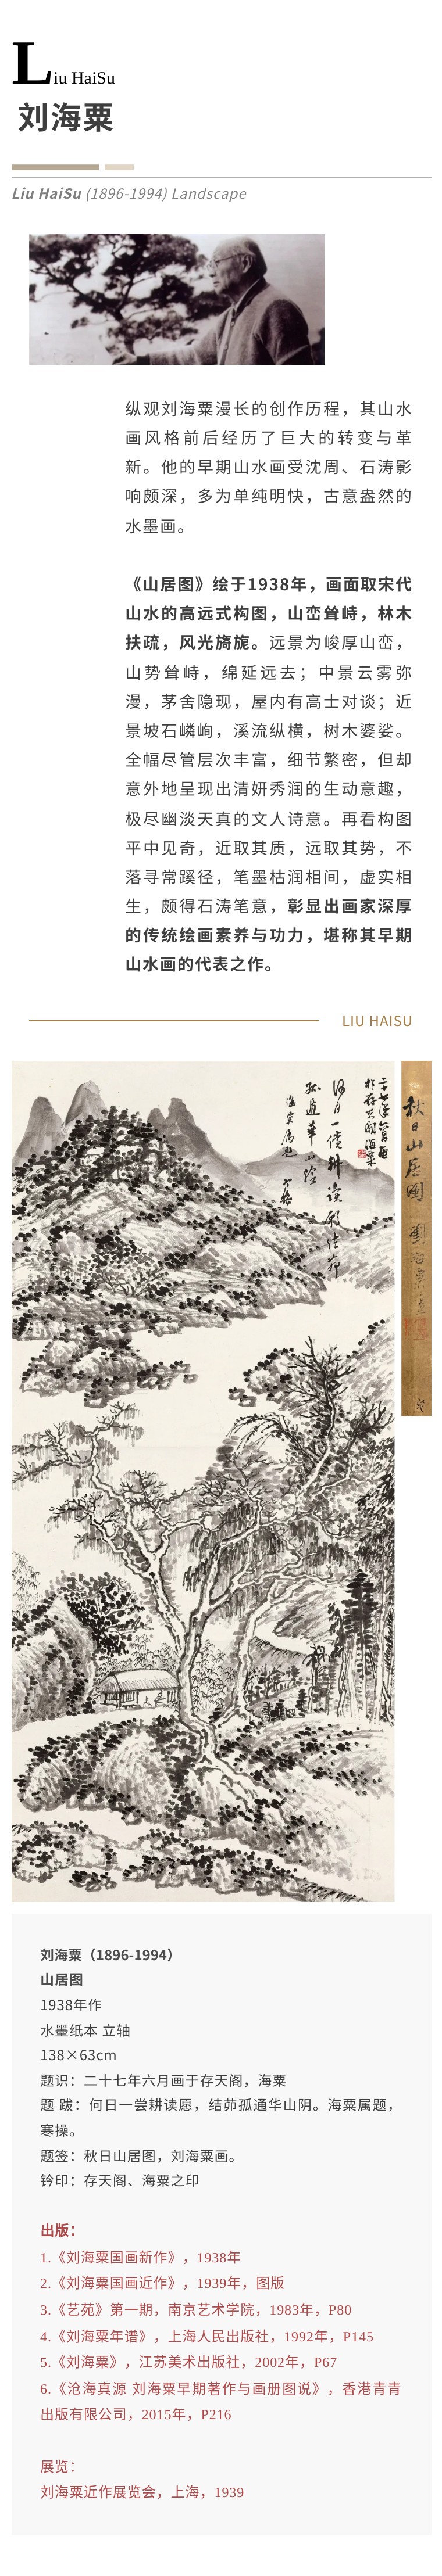 Liu HaiSu
刘海粟
Liu HaiSu (1896-1994) Landscape
纵观刘海粟漫长的创作历程，其山水
画风格前后经历了巨大的转变与革
新。他的早期山水画受沈周、石涛影
响颇深，多为单纯明快，古意盎然的
水墨画。
《山居图》绘于1938年，画面取宋代
山水的高远式构图，山峦耸峙，林木
扶疏，风光旖旎。远景为峻厚山峦，
山势耸峙，绵延远去；中景云雾弥
漫，茅舍隐现，屋内有高士对谈；近
景坡石嶙峋，溪流纵横，树木婆娑。
全幅尽管层次丰富，细节繁密，但却
意外地呈现出清妍秀润的生动意趣，
极尽幽淡天真的文人诗意。再看构图
平中见奇，近取其质，远取其势，不
落寻常蹊径，笔墨枯润相间，虚实相
生，颇得石涛笔意，彰显出画家深厚
的传统绘画素养与功力，堪称其早期
山水画的代表之作。
LIU HAISU
二十七年六月画
于存天阁海粟
何日一偿耕读愿结茆
孤通华山阴
海粟属题
秋日山居图 刘海粟画
刘海粟（1896-1994）
山居图
1938年作
水墨纸本 立轴
138×63cm
题识：二十七年六月画于存天阁，海粟
题 跋：何日一尝耕读愿，结茆孤通华山阴。海粟属题，
寒操。
题签：秋日山居图，刘海粟画。
钤印：存天阁、海粟之印
出版：
1.《刘海粟国画新作》，1938年
2.《刘海粟国画近作》，1939年，图版
3.《艺苑》第一期，南京艺术学院，1983年，P80
4.《刘海粟年谱》，上海人民出版社，1992年，P145
5.《刘海粟》，江苏美术出版社，2002年，P67
6.《沧海真源 刘海粟早期著作与画册图说》，香港青青
出版有限公司，2015年，P216
展览：
刘海粟近作展览会，上海，1939